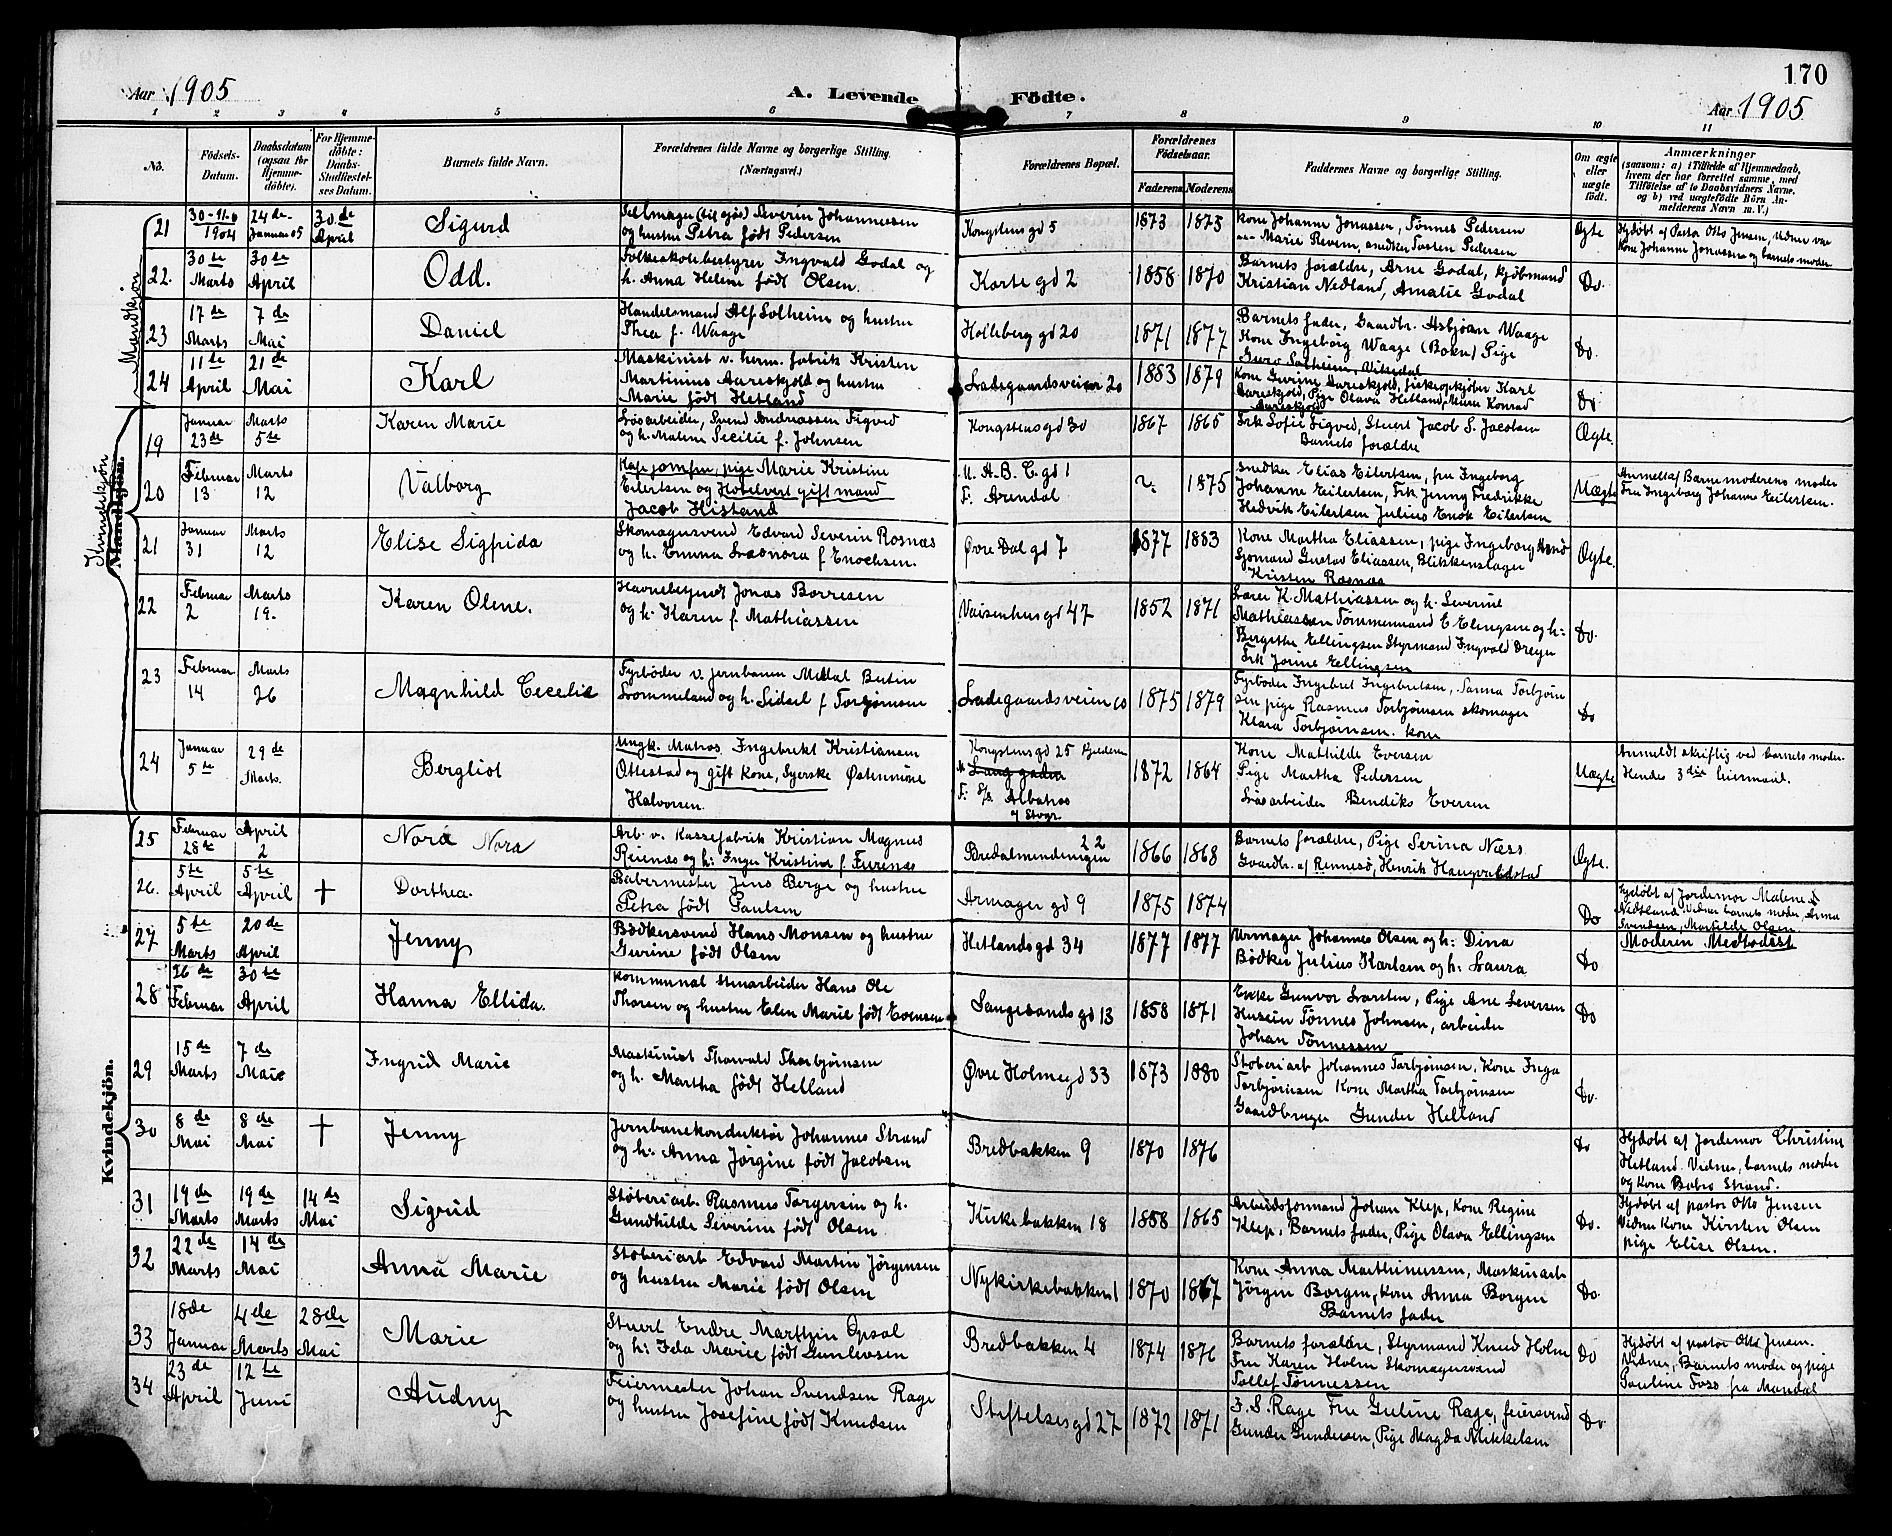 170
Aar 1905
A. Levende Födte.
Aar 1905
1 2 3 4 5 6 7 8 9 10 11
No.
Födsels-
Datum.
Daabsdatum
(ogsaa for
Hjemme-
döbte).
For Hjemme-
döbte:
Daabs-
Stadfæstel-
ses Datum.
Barnets fulde Navn.
Forældrenes fulde Navne og borgerlige Stilling.
(Næringsvei.)
Forældrenes Bopæl.
Forældrenes
Födselsaar.
Faderens Moderens
Faddernes Navne og borgerlige Stilling.
Om ægte
eller
uægte
födt.
Anmærkninger
(saasom: a) i Tilfælde af Hjemmedaab,
hvem der har forrettet samme, med
Tilföielse af to Daabsvidners Navne,
og b) ved uægtefödte Börn An-
melderens Navn m. V.)
Mandkjön
21
30-11
1904
24de
Januar 05
30de
April
Sigurd
Severin Johannessen
og hustru Petra født Pedersen
Kongstens gd 5
1873 1875
Kone Johanne Jonassen, Tönnes Pedersen
Marie Revem, snedker Torsten Pedersen
Ægte
Hjdöbt af Pastor Otto Jensen, Vidner var
Kone Johanne Jonassen og barnets moder
22.
30te
Marts
30te
April
Odd.
Folkeskolebestyrer Ingvald Godal og
h. Anna Helene født Olsen.
Korte gd 2
1858 1870
Barnets forældre, Arne Godal, kjöbmand
Kristian Nedland, Amalie Godal
Do.
23
17de
Marts
7de
Mai
Daniel
Handelsmand Alf Solheim og hustru
Thea f. Waage
Holleberg gd 20
1871 1877
Barnets fader, Gaardbr. Asbjørn Waage
Kone Ingeborg Waage (Bokn) Pige
Guro Solheim, Vikedal
Do.
24
11te
April
21de
Mai
Karl
Maskinist v. herm. fabrik Kristen
Martinius Aareskjold og hustru
Marie født Hetland
Ladegaardsveien 20
1883 1879
Kone Gurine Aareskjold, fiskeopkjöber Karl
Aareskjold, Pige Olava Hetland, Murer Konrad
Aareskjold
Do
Kvindekjön
Mandkjön.
19
Januar
23de
Marts
5te
Karen Marie
Løsarbeider, Svend Andreassen Figved
og h. Malene Secilie f. Johnsen
Kongstens gd 30
1867 1865
Frk Sofie Figved, Stuert Jacob S. Jacobsen
Barnets forældre
Ægte.
20
Februar
13
Marts
12
Valborg
pige Marie Kristine
Eilertsen og Hotelvert gift mand
Jacob Hisland
M. A. B. C. gd 1
F. Arendal
?
1875
Snedker Elias Eilertsen, fru Ingeborg
Johanne Eilertsen, Frk Jenny Fredrikke
Hedvik Eilertsen Julius Enok Eilertsen
Uægte
Anmeldt af Barnemoderens moder
Fru Ingeborg Johanne Eilertsen.
21
Januar
31
Marts
12
Elise Sigfrida
Skomagersvend Edvard Severin Rosnæs
og h. Emma Leonora f Enochsen.
Øvre Dal gd 7
1877 1883
Kone Martha Eliassen, pige Ingeborg Arnø
Sjømand Gustav Eliassen, Blikkenslager
Kristen Rosnæs
Ægte.
22
Februar
2
Marts
19.
Karen Olene.
Havnebetjent Jonas Borresen
og h. Karen f. Mathiassen
Vaisenhus gd 47
1852 1871
Lærer K. Mathiassen og h. Severine
Mathiassen Tømmermand E Elingsen og h:
Bergithe Ellingsen Styrmand Ingvald Dreyer
Frk Jorine Ellingsen
Do.
23
Februar
14
Marts
26
Magnhild Cecelie
Fyrbøder v. jernbanen Mikkal Bertin
Lommeland og h. Sidsel f Torbjørnsen
Ladegaardsveien 60
1875 1879
Fyrbøder Ingebret Ingebretsen, Sanna Torbjørn
sen pige Rasmus Torbjørnsen skomager
Klara Torbjørnsen. kone
Do
24
Januar
5te
29de
Marts.
Bergliot
Ungk. Matros. Ingebrekt Kristiansen
Ottestad og gift Kone, Syerske Østenmine
Halvorsen.
Kongstens gd 25
M Lang gaden
F: S/S. Albatros
1872 1864
Kone Mathilde Eversen
Pige Martha Pedersen
Løsarbeider Bendiks Eversen
Uægte
Anmeldt skriftlig ved barnets moder
Hendes 3die leiermaal.
Kvindekjön.
25
Februar
28de
April
2
Nora Nora
Arb. v. Kassefabrik Kristian Magnus
Reienæs og h: Inger Kristine f Furenæs
Bredalmenningen 22
1866 1868
Barnets forældre, Pige Serina Næss
Gaardbr. af Rennesø, Henrik Haugvaldstad
Ægte.
26.
5te
April
5te
April
†
Dorthea.
Babermester Jens Berge og hustru
Petra født Paulsen
Armager gd 9
1875 1874
Do
Hjdöbt af Jordemor Malene
Nedtland Vidner barnets moder, Anna
Svendsen, Martilde Olsen
27
5te
Marts
20de
April
Jenny
Bödkersvend Hans Monsen og hustru
Gurine født Olsen
Hetlands gd 34
1877 1877
Urmager Johannes Olsen og h: Dina
Bödker Julius Karlsen og h: Laura
Do
Moderen Methodist
28
26de
Februar
30te
April
Hanna Ellida.
Kommunal stenarbeider Hans Ole
Thorsen og hustru Elen Marie født Evensen
Langesands gd 13
1858 1871
Enke Gunvor Larsten, Pige Ane Seversen
Husein Tønnes Johnsen, arbeider
Johan Tønnessen
Do
29
15de
Marts
7de
Mai
Ingrid Marie
Maskinist Thorvald Thorbjørnsen
og h. Martha født Helland
Øvre Holmegd 33
1873 1880
Støberiarb Johannes Torbjørnsen, Kone Inga
Torbjørnsen Kone Martha Torbjørnsen
Gaardbruger Gunder Helland
Do.
30
8de
Mai
8de
Mai
†
Jenny
Jernbanekonduktør Johannes Strand
og h: Anna Jørgine født Jacobsen
Bredbakken 9
1870 1876
Do
Hjdöbt af Jordemor Christine
Hetland. Vidner, barnets moder
og Kone Bobro Strand.
31
19de
Marts
19de
Marts
14de
Mai
Sigrid
Støberiarb. Rasmus Torgersen og h.
Gundhilde Severine født Olsen
Kirkebakken 18
1858 1865
Arbeidsformand Johan Klep, Kone Regine
Klep, Barnets fader, Pige Olava Ellingsen
Do.
Hjdöbt af pastor Otto Jensen
Vidner Kone Kirsten Olsen
pige Elise Olsen.
32
22de
Marts
14de
Mai
Anna Marie
Støberiarb Edvard Martin Jörgensen
og hustru Marie født Olsen
Nykirkebakken 1
1870 1867
Kone Anna Marthinussen, Maskinarb
Jörgen Borgen, kone Anna Borgen
Barnets fader
Do.
33
18de
Januar
4de
Marts
28de
Mai
Marie
Stuert Endre Marthin Opsal
og h: Ida Marie født Gunlevsen
Bredbakken 4
1874 1876
Barnets forældre, Styrmand Knud Holm
Fru Karen Holm Skomagersvend
Tollef Tønnessen
Do
Hjdöbt af pastor Otto Jensen.
Vidner, Barnets moder og pige
Pauline Foss fra Mandal
34
23de
April
12te
Juni
Audny
Feiermester Johan Svendsen Rage
og hustru Josefine født Knudsen
Stiftelses gd 27
1872 1871
J. S. Rage Fru Guline Rage, feiersvend
Gunder Gundersen, Pige Magda Mikkelsen
Do.